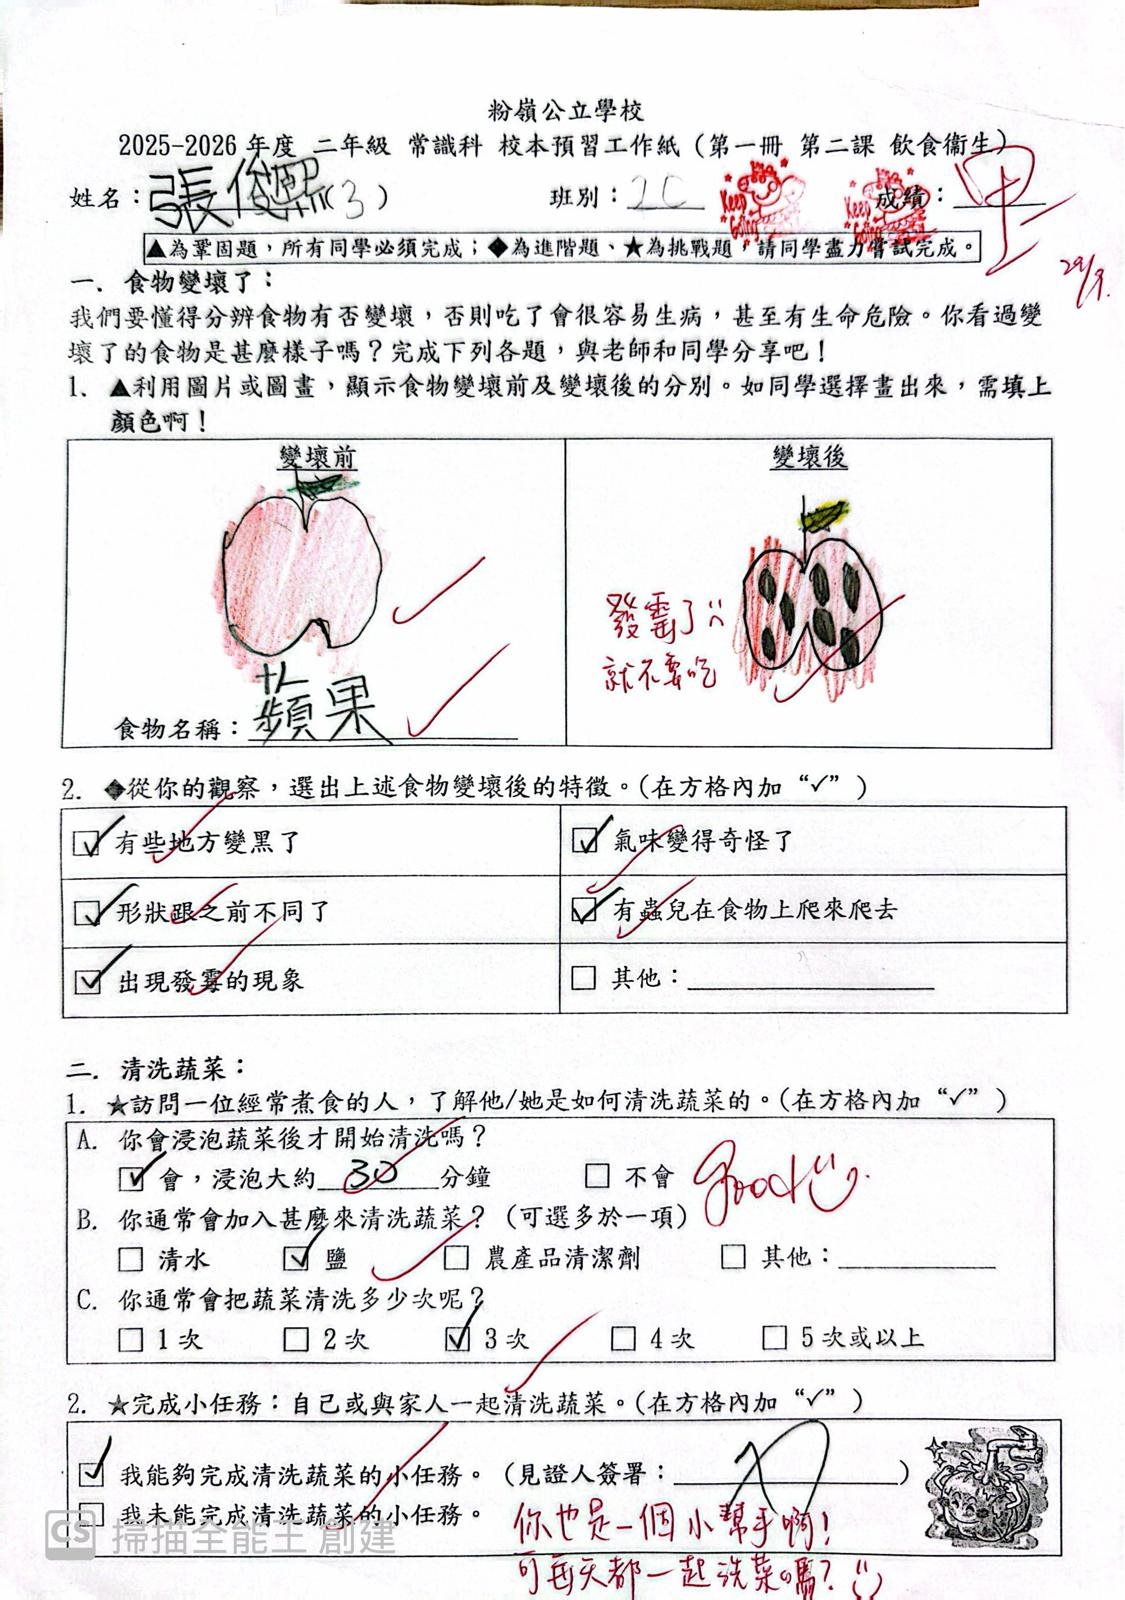 粉嶺公立學校
2025-2026 年度 二年級 常識科 校本預習工作紙（第一冊 第二課 飲食衞生）
姓名：張俊熙(3) 班別：2C 成績：甲
Keep Going Keep Going
▲為鞏固題，所有同學必須完成；◆為進階題、★為挑戰題，請同學盡力嘗試完成。
29/9.
一. 食物變壞了：
我們要懂得分辨食物有否變壞，否則吃了會很容易生病，甚至有生命危險。你看過變
壞了的食物是甚麼樣子嗎？完成下列各題，與老師和同學分享吧！
1. ▲利用圖片或圖畫，顯示食物變壞前及變壞後的分別。如同學選擇畫出來，需填上
顏色啊！
變壞前
食物名稱：蘋果
變壞後
發霉了
就不要吃
2. ◆從你的觀察，選出上述食物變壞後的特徵。(在方格內加 “✓” )
☑ 有些地方變黑了 ☑ 氣味變得奇怪了
☑ 形狀跟之前不同了 ☑ 有蟲兒在食物上爬來爬去
☑ 出現發霉的現象 □ 其他：
二. 清洗蔬菜：
1. ★訪問一位經常煮食的人，了解他/她是如何清洗蔬菜的。(在方格內加 “✓” )
A. 你會浸泡蔬菜後才開始清洗嗎？
☑ 會，浸泡大約 30 分鐘 □ 不會
Good
B. 你通常會加入甚麼來清洗蔬菜？（可選多於一項）
□ 清水 ☑ 鹽 □ 農產品清潔劑 □ 其他：
C. 你通常會把蔬菜清洗多少次呢？
□ 1 次 □ 2 次 ☑ 3 次 □ 4 次 □ 5 次或以上
2. ★完成小任務：自己或與家人一起清洗蔬菜。(在方格內加 “✓” )
☑ 我能夠完成清洗蔬菜的小任務。（見證人簽署：）
□ 我未能完成清洗蔬菜的小任務。
你也是一個小幫手啊！
可每天都一起洗菜嗎？
CS 掃描全能王 創建